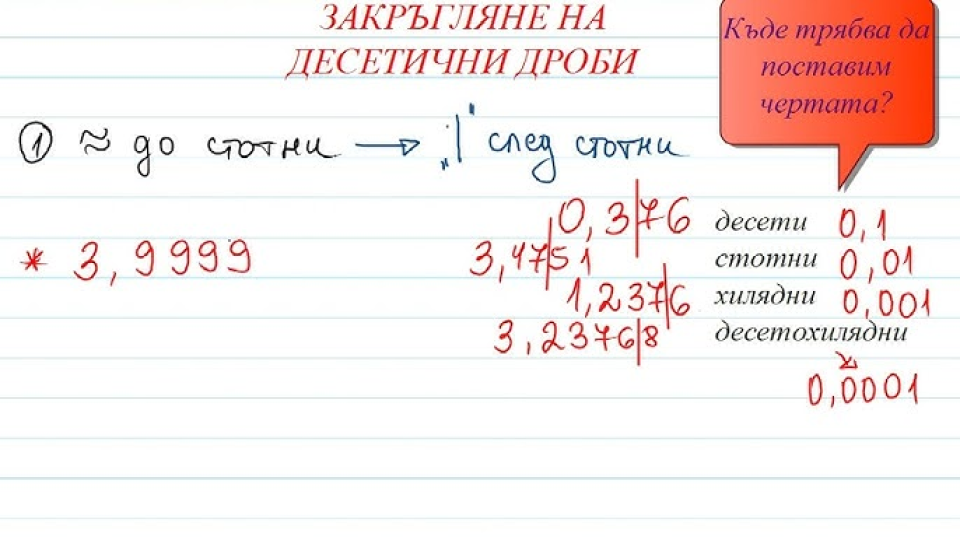 ЗАКРЪГЛЯНЕ НА
ДЕСЕТИЧНИ ДРОБИ
Къде трябва да
поставим
чертата?
1 ≈ до стотни → „|" след стотни
0,3|76 десети 0,1
* 3,9999
3,47|51 стотни 0,01
1,237|6 хилядни 0,001
3,2376|8 десетохилядни
0,0001